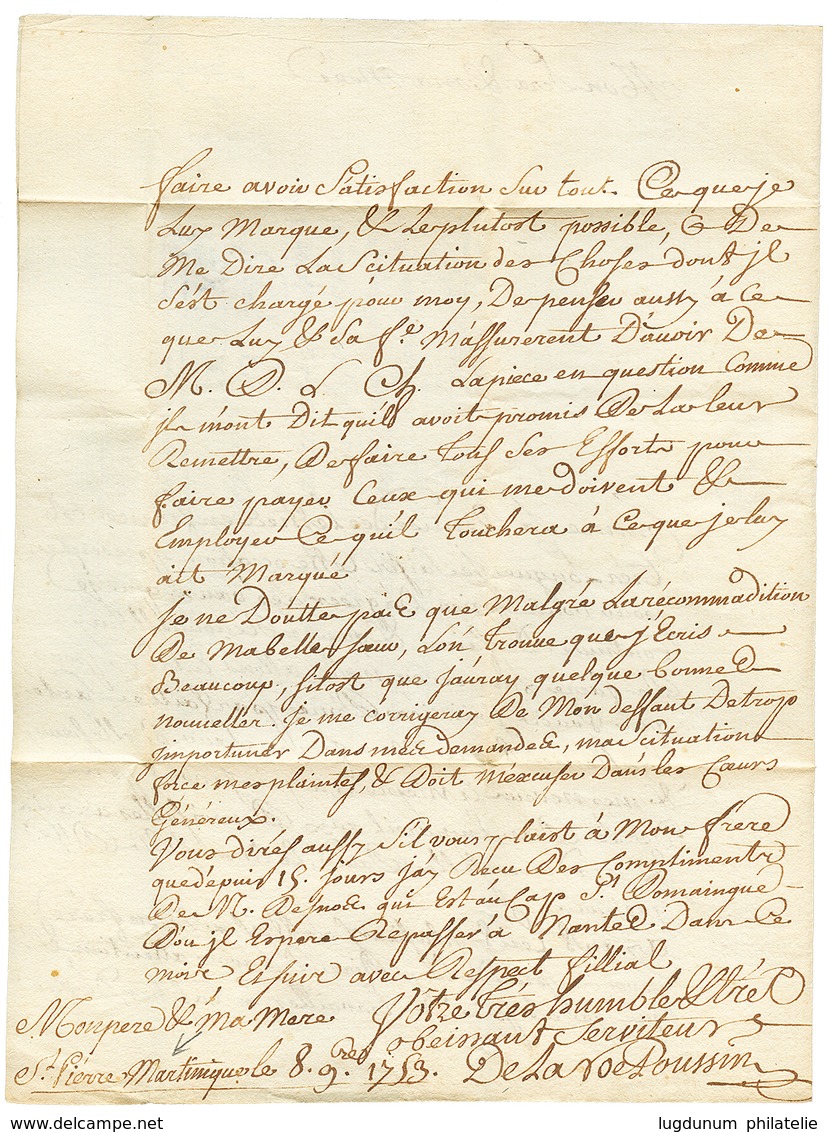 faire avoir Satisfaction Sur tout. Ce que je
Luy Marque, & Le plutost possible, & De
Me Dire La Scituation des Choses dont jl
S'est chargé pour moy, De penser aussy á ce
que Luy & Sa fe. M'assurerent D'avoir De
M. D. L Ch. La piece en question Comme
jls m'ont Dit qu'ils avoit promis De La leur
Remettre, De faire Tous Ses Efforts pour
faire payer Ceux qui me doivent &
Employer Ce qu'il Touchera á Ce que je luy
ait Marqué
Je ne Doutte pas que Malgré La récommadition
De Ma belle soeur, L'on Trouve que j'Ecris
Beaucoup, sitost que j'auray quelque bonnes
nouvelles je me corrigeray De Mon deffaut De trop
jmportuner Dans mes demandes, ma Scituation
force mes plaintes, & Doit M'éxcuser Dans les Coeurs
Généreux.
Vous dirés aussy S'il vous plaist á Mon frére
que depuis 15. jours j'áy Recu Des Compliments
De N. qui Est áu Cap St. Domaingue
D'ou jl Espere Répasser á Nantes Dans Ce
mois avec Respect fillial
Mon pere & Ma Mere Votre Trés humble & trés
obeissant Serviteur
St. Pierre Martinique le 8. 9.bre 1753. De La Poussin
lugdunum philatelie